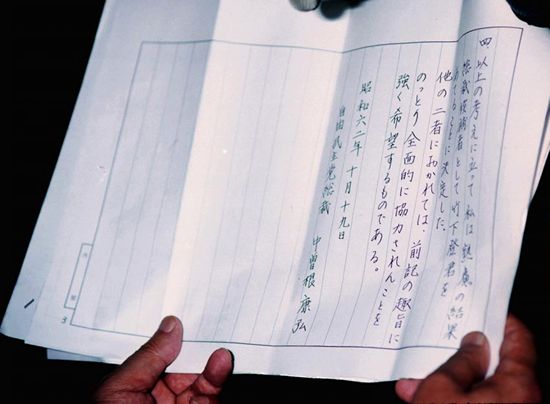 四 以上の考えに立って私は熟慮の結果
総裁候補者として竹下登君を
当てることに決定した。
他の二者におかれては、前記の趣旨に
のっとり全面的に協力されんことを
強く希望するものである。
昭和六二年十月十九日
自由民主党総裁 中曽根康弘